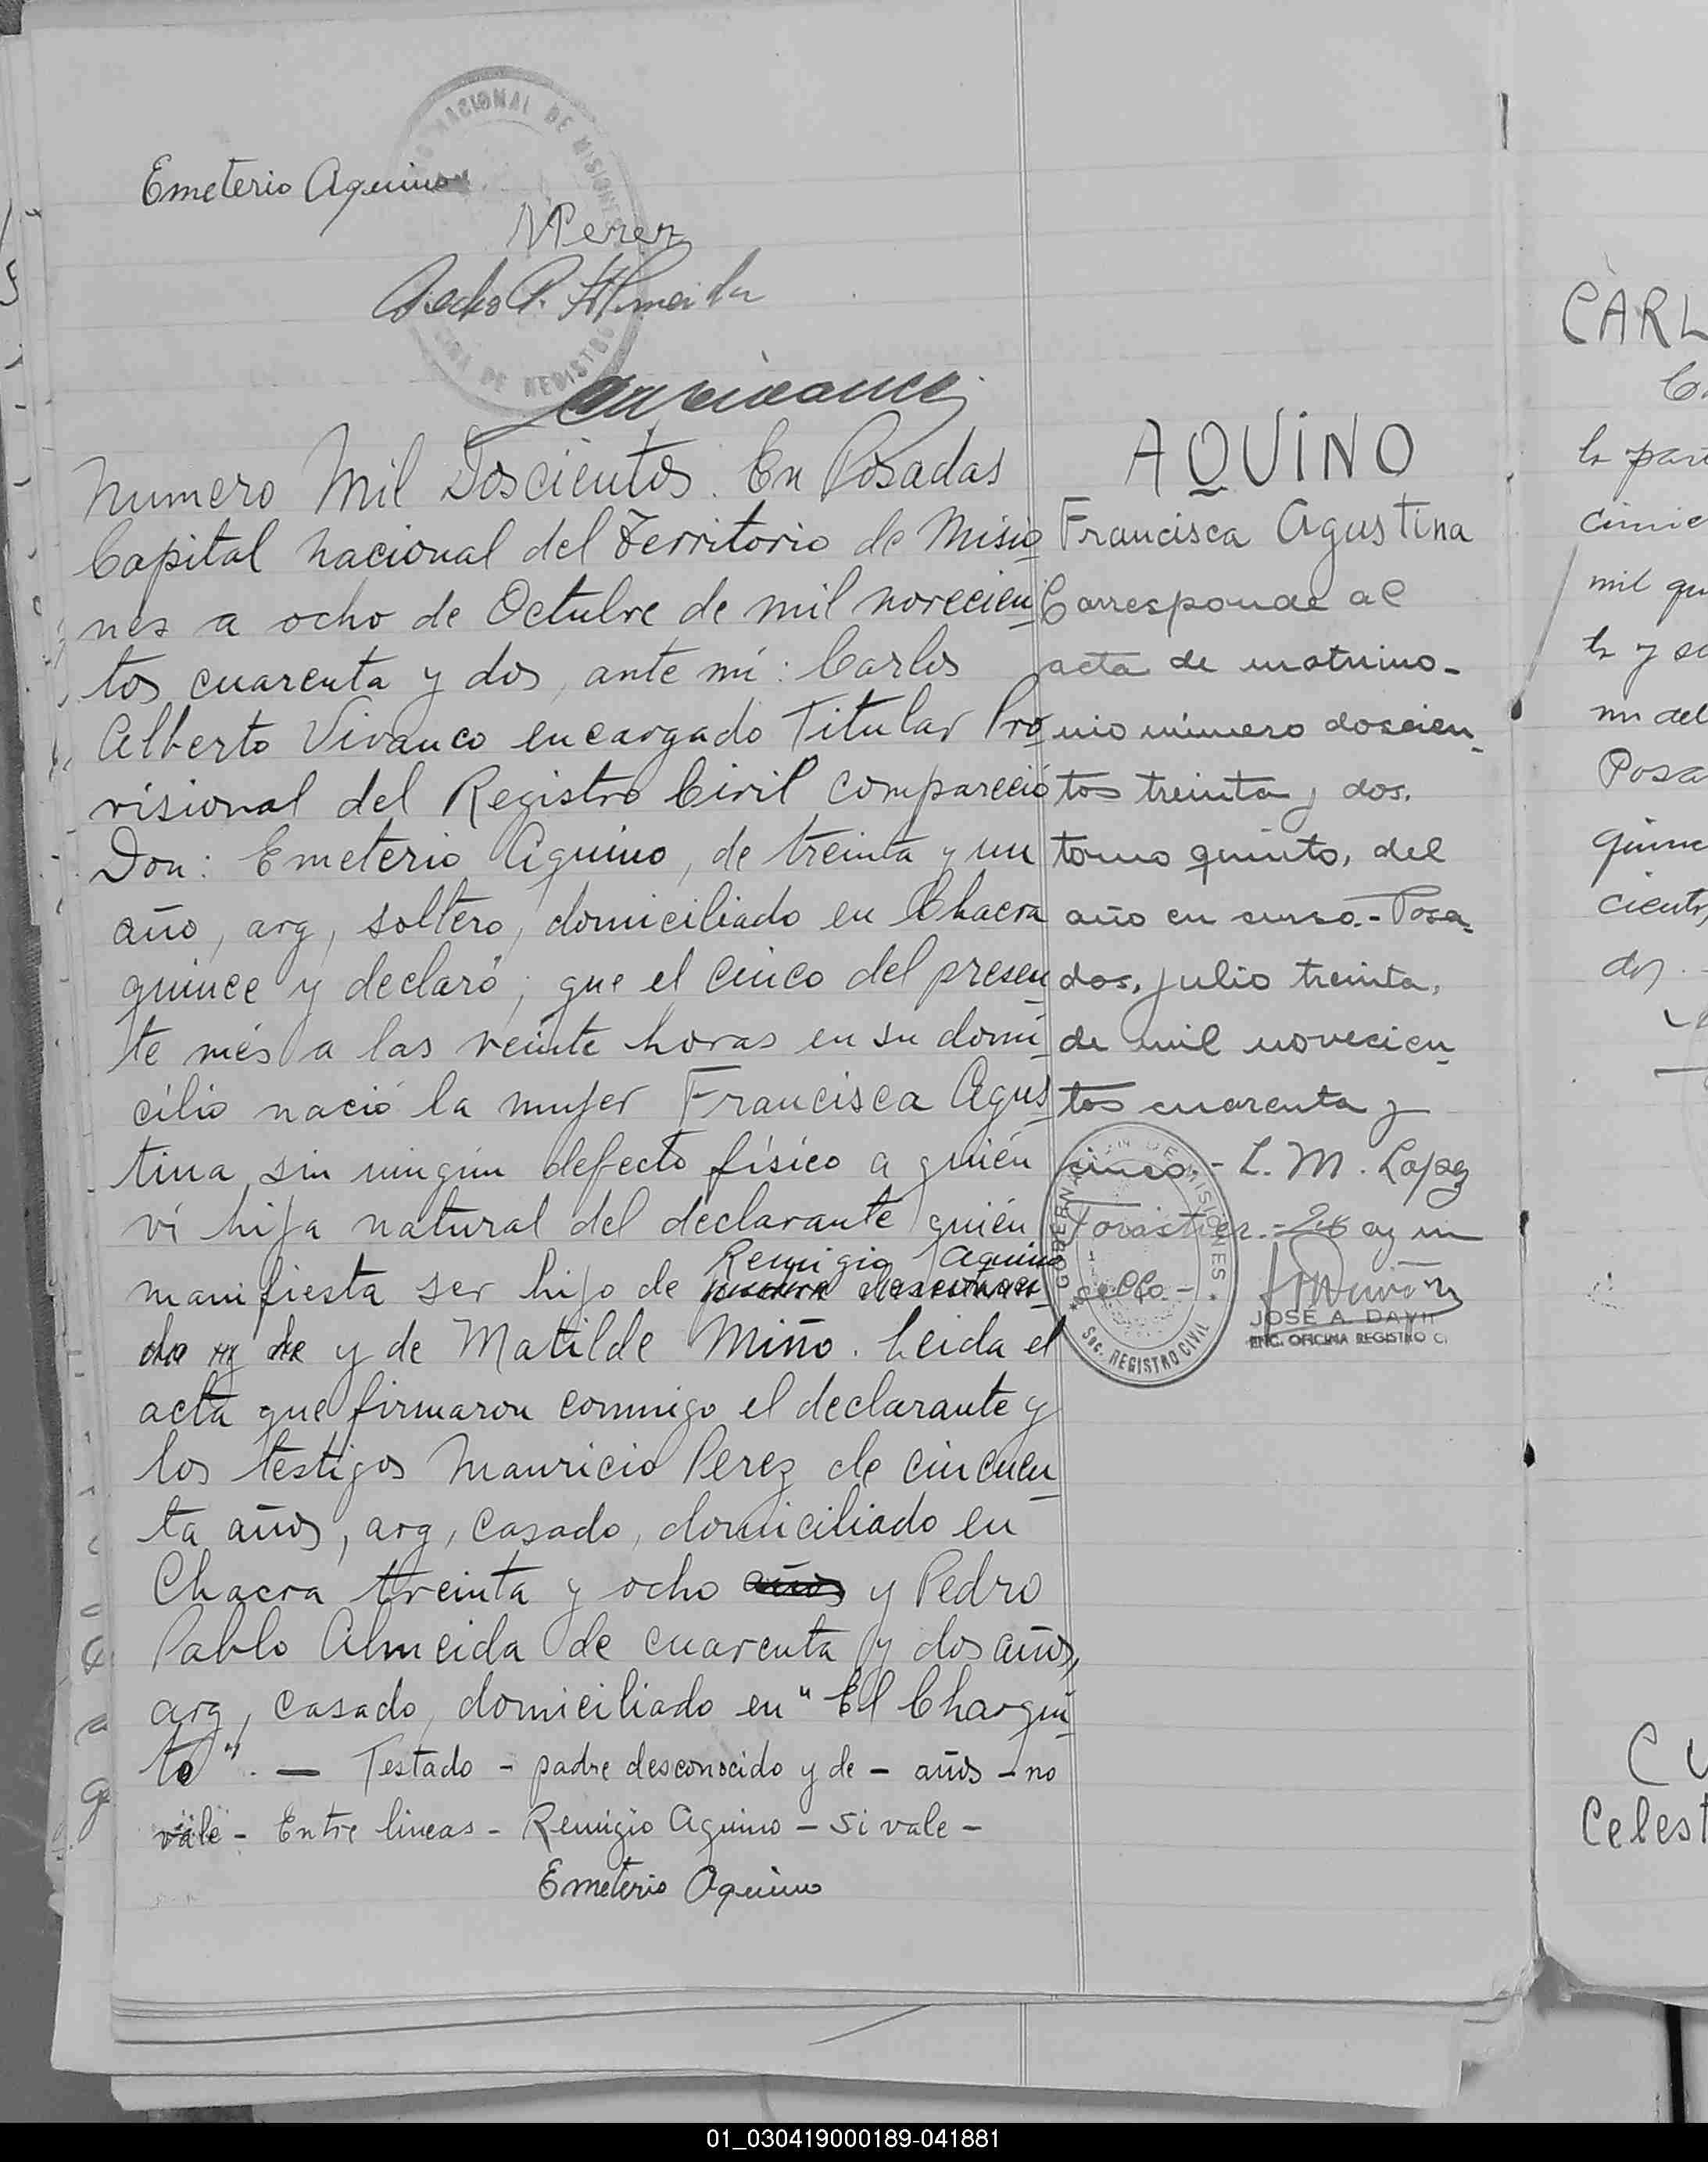 NACIONAL DE MISIONES
DE REGISTRO
Emeterio Aquino
MPerez
Pedro P. Almeida
Numero Mil Doscientos. En Posadas
Capital nacional del Territorio de Misio
nes a ocho de Octubre de mil novecien
tos cuarenta y dos, ante mi: Carlos
Alberto Vivanco encargado Titular Pro
visional del Registro Civil compareció
Don: Emeterio Aquino, de treinta y un
año, arg, soltero, domiciliado en Chacra
quince y declaró; que el cinco del presen
te més a las veinte horas en su domi
cilio nació la mujer Francisca Agus
tina sin ningún defecto físico a quién
ví hija natural del declarante quién
Remigio Aquino
manifiesta ser hijo de padre desconoci
do y de y de Matilde Miño. Leida el
acta que firmaron conmigo el declarante y
los testigos Mauricio Perez de cincuen
ta años, arg, casado, domiciliado en
Chacra treinta y ocho años y Pedro
Pablo Almeida de cuarenta y dos años,
arg, casado, domiciliado en "El Chaqui
to". — Testado - padre desconocido y de - años - no
vale - Entre lineas - Remigio Aquino - Si vale -
Emeterio Aquino
AQUINO
Francisca Agustina
Corresponde al
acta de matrimo-
nio número doscien
tos treinta y dos.
tomo quinto, del
año en curso.- Posa
das, julio treinta,
de mil novecien
tos cuarenta y
cinco.- L. M. Lopez
Forastier.-
sello-
MISIONES
Sec. REGISTRO CIVIL
JOSÉ A. DAVI
ENC. OFICINA REGISTRO C.
CARL
la part
mil qu
ta y se
del
Posa
quince
ciento
dos.
CU
Celest
01_030419000189-041881